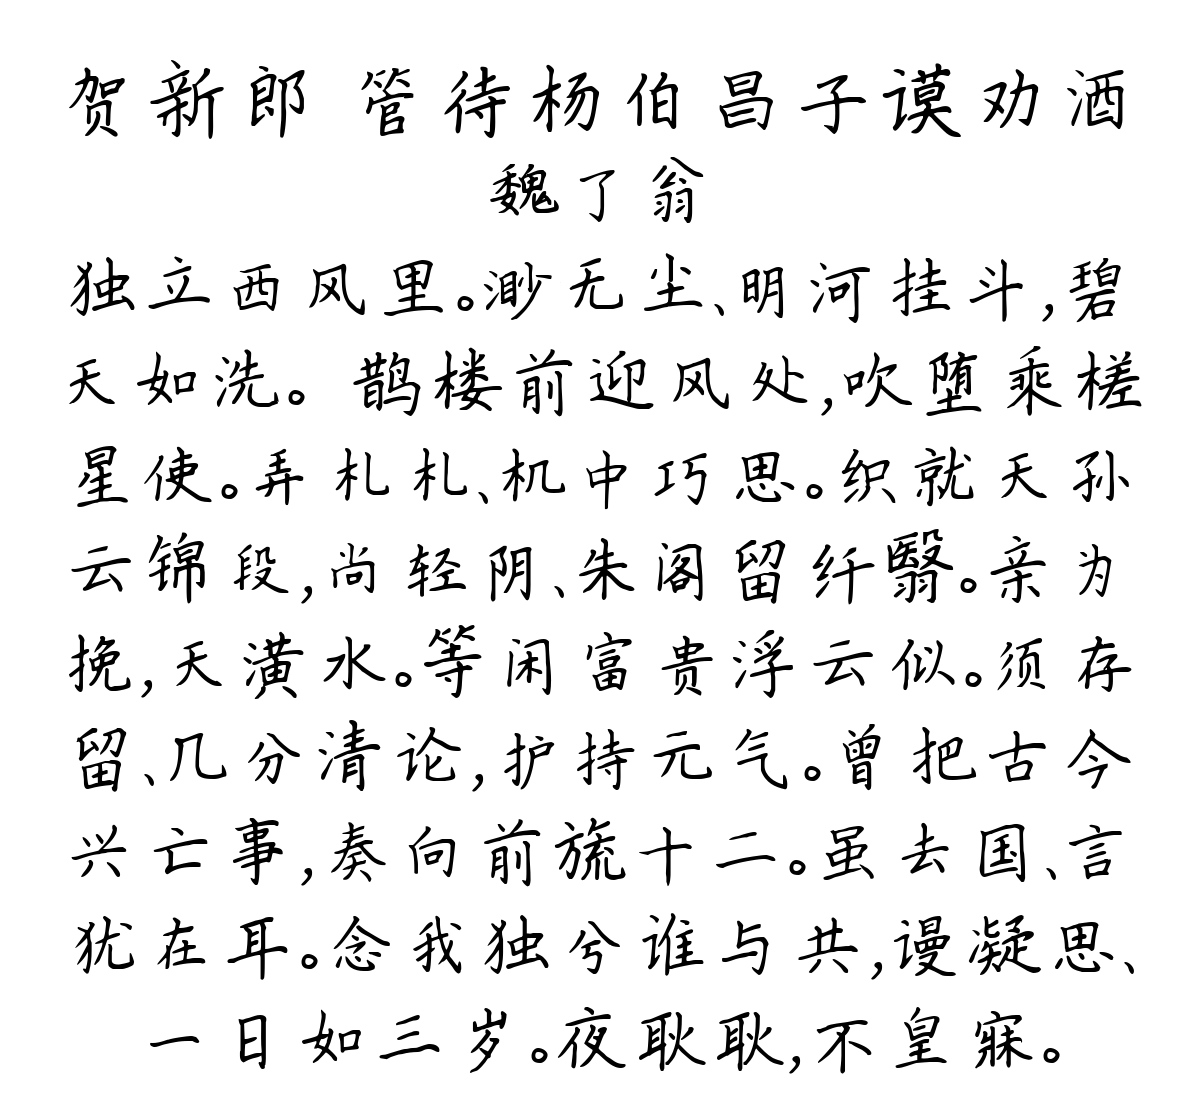 贺新郎 管待杨伯昌子谟劝酒
魏了翁
独立西风里。渺无尘、明河挂斗,碧
天如洗。鹊楼前迎风处,吹堕乘槎
星使。弄札札、机中巧思。织就天孙
云锦段,尚轻阴、朱阁留纤翳。亲为
挽,天潢水。等闲富贵浮云似。须存
留、几分清论,护持元气。曾把古今
兴亡事,奏向前旒十二。虽去国、言
犹在耳。念我独兮谁与共,谩凝思、
一日如三岁。夜耿耿,不皇寐。